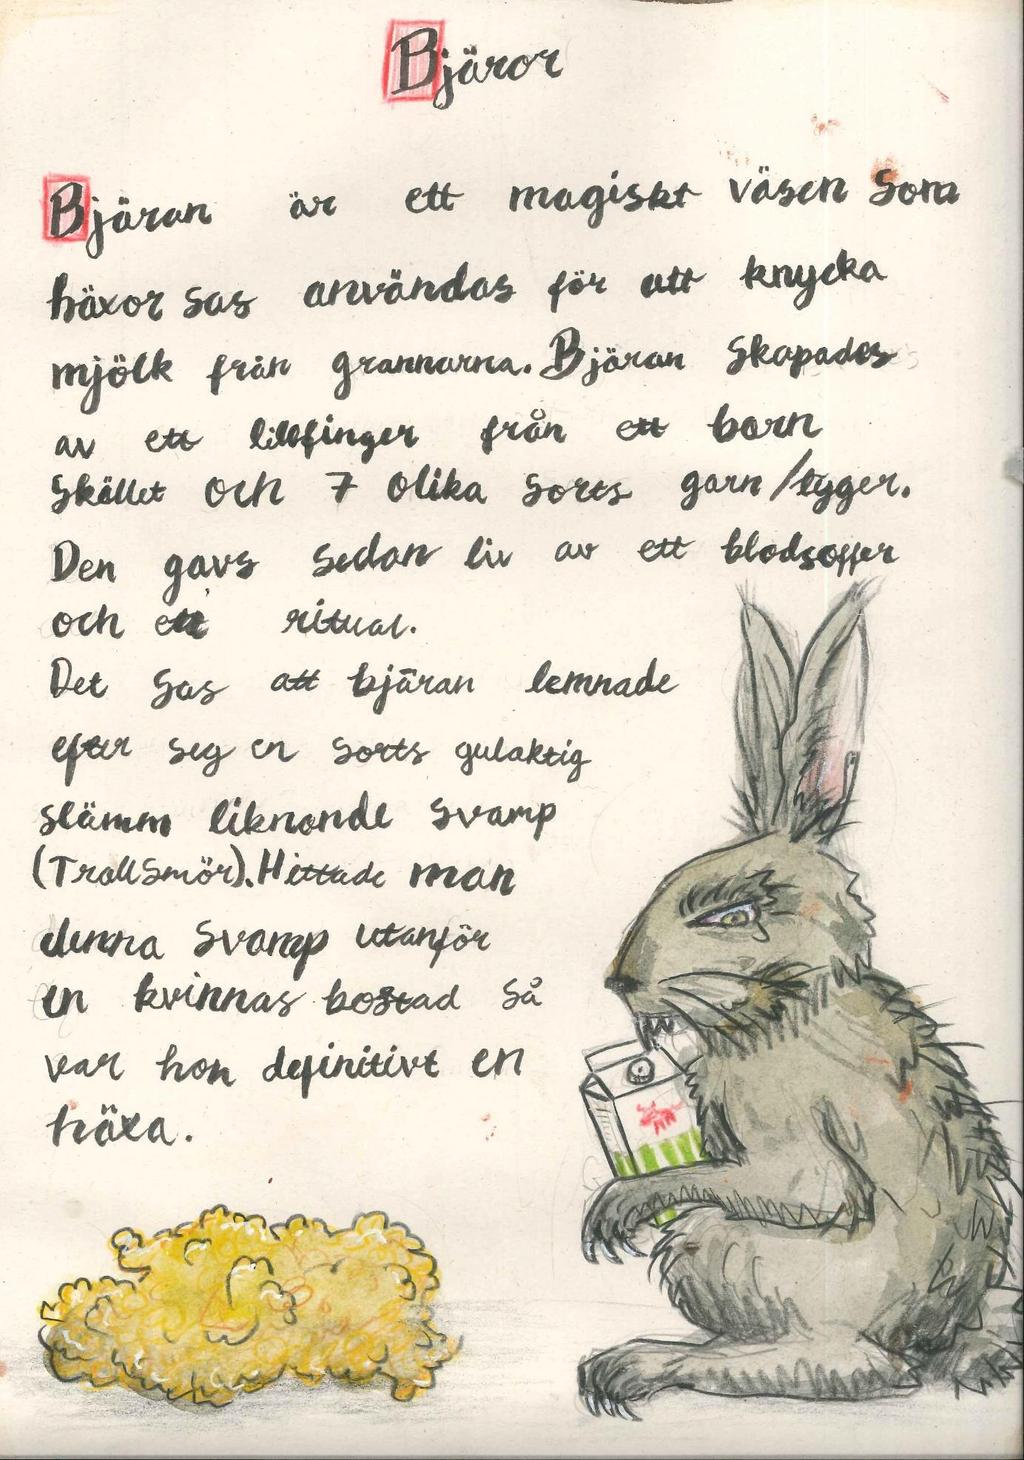 Bjäror
Bjäran är ett magiskt väsen som
häxor sas användas för att knycka
mjölk från grannarna. Bjäran skapades
av ett lillfinger från ett barn
skället och 7 olika sorts garn/tyger.
Den gavs sedan liv av ett blodsoffer
och ett ritual.
Det sas att bjäran lemnade
efter seg en sorts gulaktig
slämm liknande svamp
(Trollsmör). Hittade man
denna svamp utanför
en kvinnas bostad så
var hon definitivt en
häxa.